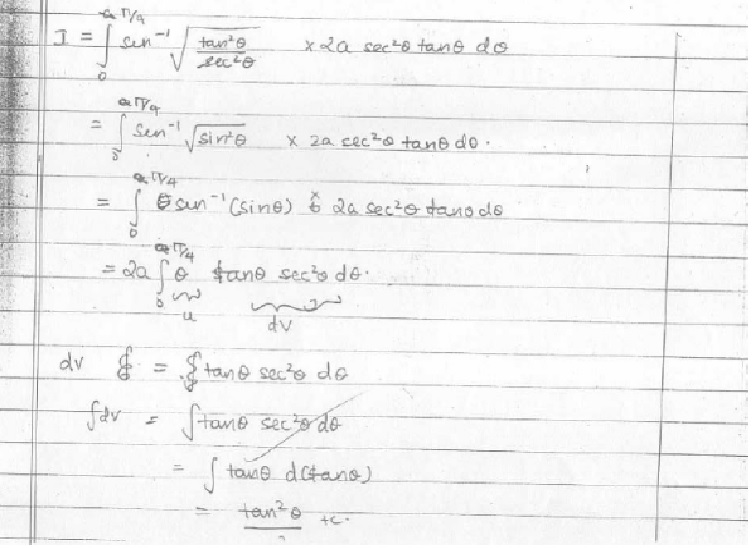 I = ∫₀^{π/4} sin⁻¹ √(tan²θ / sec²θ) × 2a sec²θ tanθ dθ
= ∫₀^{π/4} sin⁻¹ √sin²θ × 2a sec²θ tanθ dθ.
= ∫₀^{π/4} sin⁻¹(sinθ) × 2a sec²θ tanθ dθ
= 2a ∫₀^{π/4} θ tanθ sec²θ dθ.
u dv
dv = tanθ sec²θ dθ
∫dv = ∫tanθ sec²θ dθ
= ∫ tanθ d(tanθ)
= tan²θ +c.